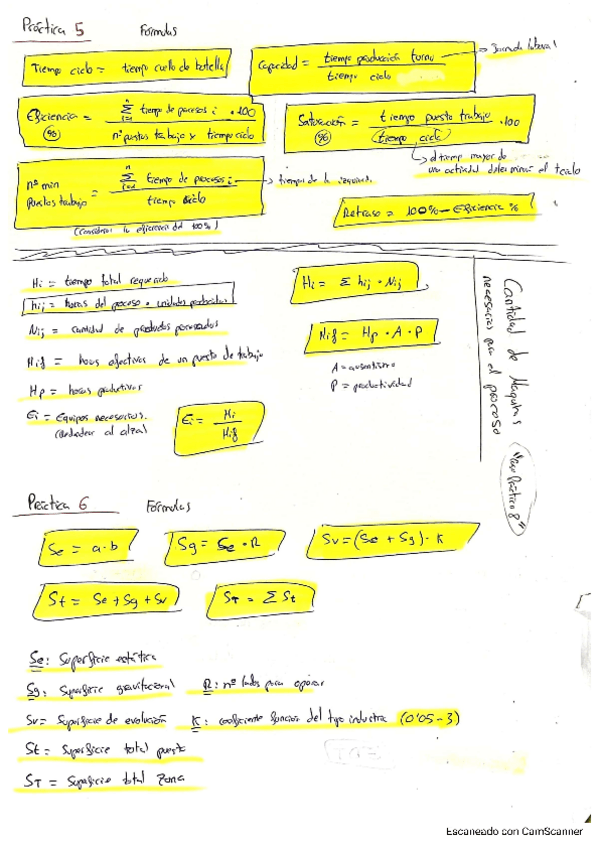 Práctica 5 Formulas
Tiempo ciclo = tiempo cuello de botella
Capacidad = tiempo producción turno / tiempo ciclo → Jornada laboral
Eficiencia (%) = n Σ i=1 tiempo de procesos i · 100 / nº puestos trabajo x tiempo ciclo
Saturación (%) = tiempo puesto trabajo / tiempo ciclo · 100
→ el tiempo mayor de
una actividad determina el ciclo
nº min puestos trabajo = n Σ i=1 tiempo de procesos i / tiempo ciclo → tiempos de la
(Considerar la eficiencia del 100%)
Retraso = 100% - Eficiencia %
Hi = tiempo total requerido
hij = horas del proceso · unidades
Nij = cantidad de productos procesados
Hif = horas efectivas de un puesto de trabajo
Hp = horas productivas
Ei = Equipos necesarios.
(redondear al alza)
Ei = Hi / Hif
Hi = Σ hij · Nij
Hif = Hp · A · P
A = ausentismo
P = productividad
Cantidad de Maquinas
necesarias para el proceso
Práctica 6 Formulas
Se = a · b
Sg = Se · R
Sv = (Se + Sg) · K
St = Se + Sg + Sv
ST = Σ St
Se: Superficie estática
Sg: Superficie gravitacional R: nº lados para operar
Sv = Superficie de evolución K: coeficiente función del tipo industria (0'05 - 3)
St = Superficie total puesto
ST = Superficie total zona
Escaneado con CamScanner